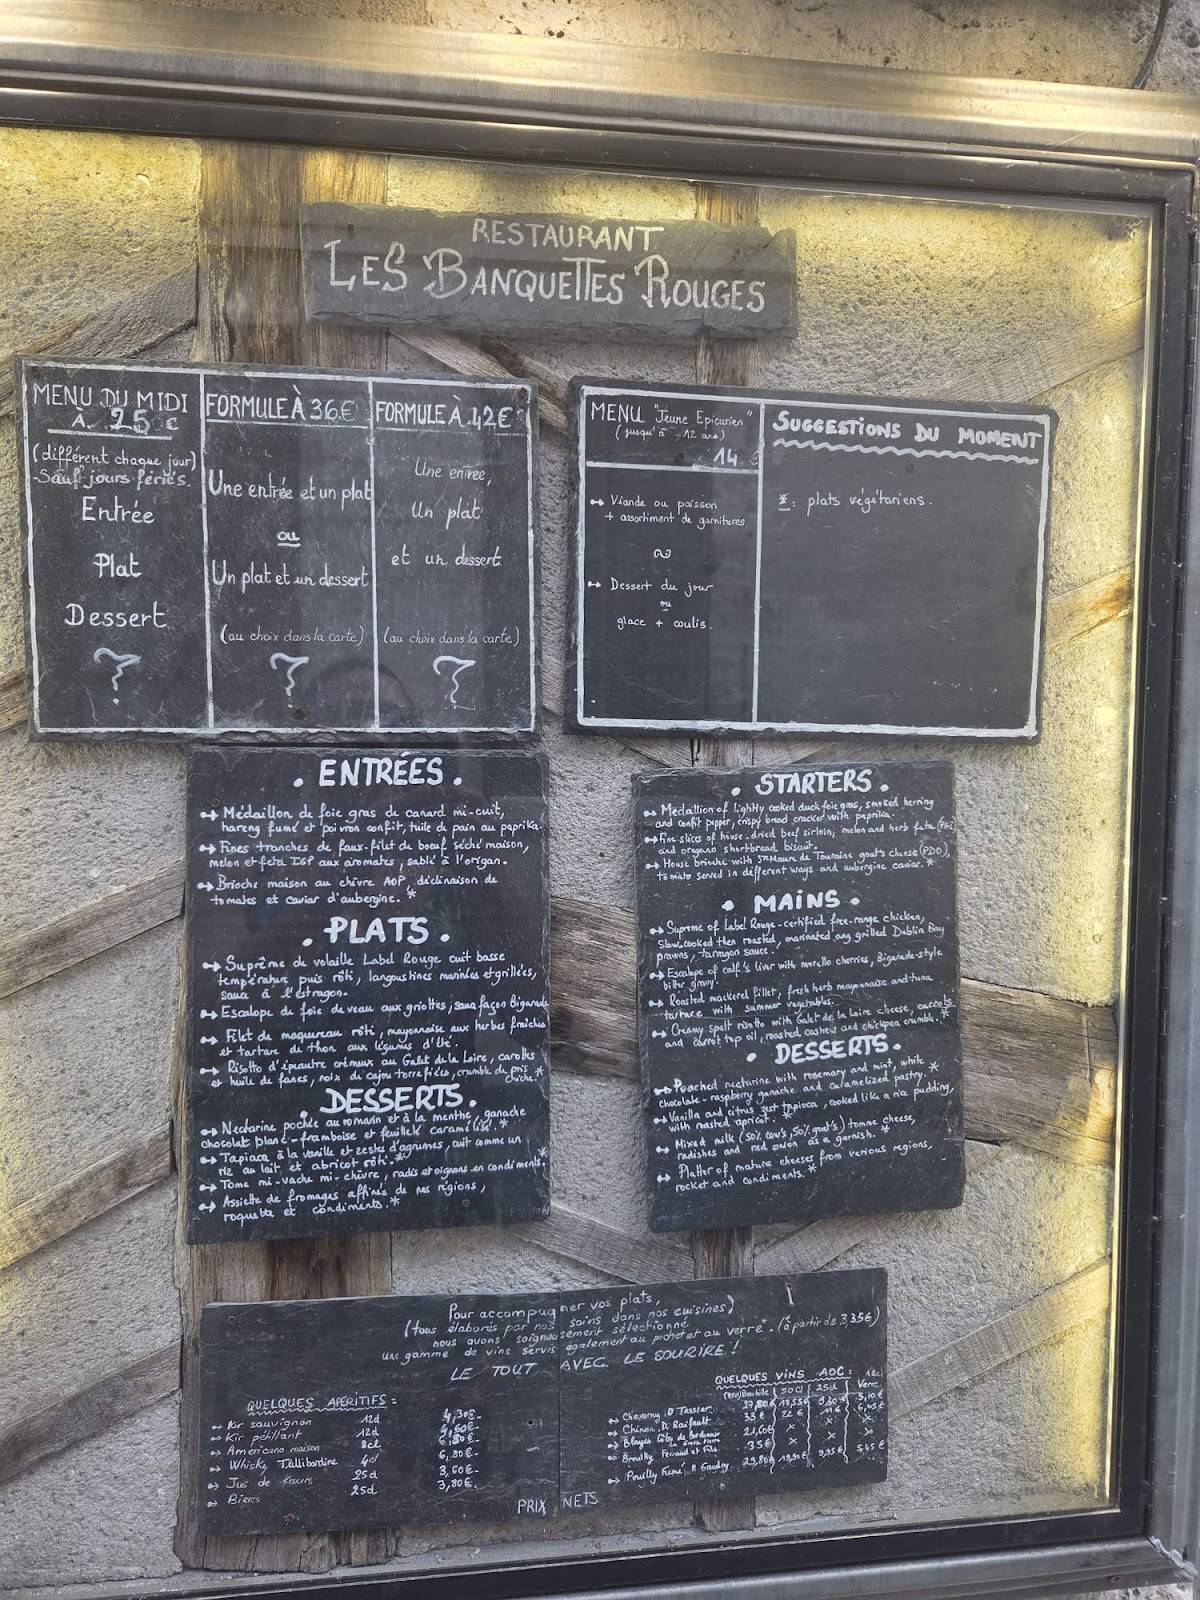 RESTAURANT
LES BANQUETTES ROUGES
MENU DU MIDI
À 25 €
(différent chaque jour)
-Sauf jours fériés.
Entrée
Plat
Dessert
?
FORMULE À 36€
Une entrée et un plat
ou
Un plat et un dessert
(au choix dans la carte)
?
FORMULE À 42€
Une entrée,
Un plat
et un dessert
(au choix dans la carte)
?
MENU "Jeune Epicurien"
(jusqu'à 12 ans)
14
Viande ou poisson
+ assortiment de garnitures
Dessert du jour
ou
glace + coulis.
SUGGESTIONS DU MOMENT
* : plats végétariens.
. ENTRÉES .
Médaillon de foie gras de canard mi-cuit,
hareng fumé et poivron confit, tuile de pain au paprika.
Fines tranches de faux-filet de boeuf séché maison,
melon et feta IGP aux aromates, sablé à l'origan.
Brioche maison au chèvre AOP, déclinaison de
tomates et caviar d'aubergine. *
. PLATS .
Suprême de volaille Label Rouge cuit basse
température puis rôti, langoustines marinées et grillées,
sauce à l'estragon.
Escalope de foie de veau aux griottes, sauce façon Bigarade
Filet de maquereau rôti, mayonnaise aux herbes fraîches
et tartare de thon aux légumes d'été.
Risotto d'épeautre crémeux au Galet de la Loire, carottes
et huile de fanes, noix de cajou torréfiées, crumble de pois
chiche. *
. DESSERTS .
Nectarine pochée au romarin et à la menthe, ganache
chocolat blanc-framboise et feuilleté caramélisé. *
Tapioca à la vanille et zestes d'agrumes, cuit comme un
riz au lait et abricot rôti. *
Tome mi-vache mi-chèvre, radis et oignons en condiments. *
Assiette de fromages affinés de nos régions,
roquette et condiments. *
. STARTERS .
Medallion of lightly cooked duck foie gras, smoked herring
and confit pepper, crispy bread cracker with paprika.
Fine slices of house-dried beef sirloin, melon and herb feta (PGI)
and oregano shortbread biscuit.
House brioche with Ste Maure de Touraine goat's cheese (PDO),
tomato served in different ways and aubergine caviar. *
. MAINS .
Supreme of Label Rouge-certified free-range chicken,
slow-cooked then roasted, marinated and grilled Dublin Bay
prawns, tarragon sauce.
Escalope of calf's liver with morello cherries, Bigarade-style
bitter gravy.
Roasted mackerel fillet, fresh herb mayonnaise and tuna
tartare with summer vegetables.
Creamy spelt risotto with Galet de la Loire cheese, carrots
and carrot top oil, roasted cashews and chickpea crumble. *
. DESSERTS .
Poached nectarine with rosemary and mint, white
chocolate-raspberry ganache and caramelized pastry. *
Vanilla and citrus zest tapioca, cooked like a rice pudding,
with roasted apricot. *
Mixed milk (50% cow's, 50% goat's) tomme cheese,
radishes and red onion as a garnish. *
Platter of mature cheeses from various regions,
rocket and condiments. *
Pour accompagner vos plats,
(tous élaborés par nos soins dans nos cuisines)
nous avons soigneusement sélectionné
une gamme de vins servis également au pichet et au verre. (à partir de 3,35€)
LE TOUT AVEC LE SOURIRE !
QUELQUES APÉRITIFS :
Kir sauvignon 12cl 4,30€-
Kir pétillant 12cl
Américano maison 8cl
Whisky Tallibardine 4cl 6,80€-
Jus de fruits 25cl 3,60€-
Bières 25cl 3,80€-
QUELQUES VINS AOC :
Bouteille 50cl 25cl Verre
Cheverny D. Tessier 27,80€
Chinon D. Raifault 33€ 22€ 11€
Blayes Côtes de Bordeaux 21,60€ x x x
Brouilly 35€ x x x
Pouilly Fumé 29,80€ 19,90€ 9,95€ 5,45€
PRIX NETS